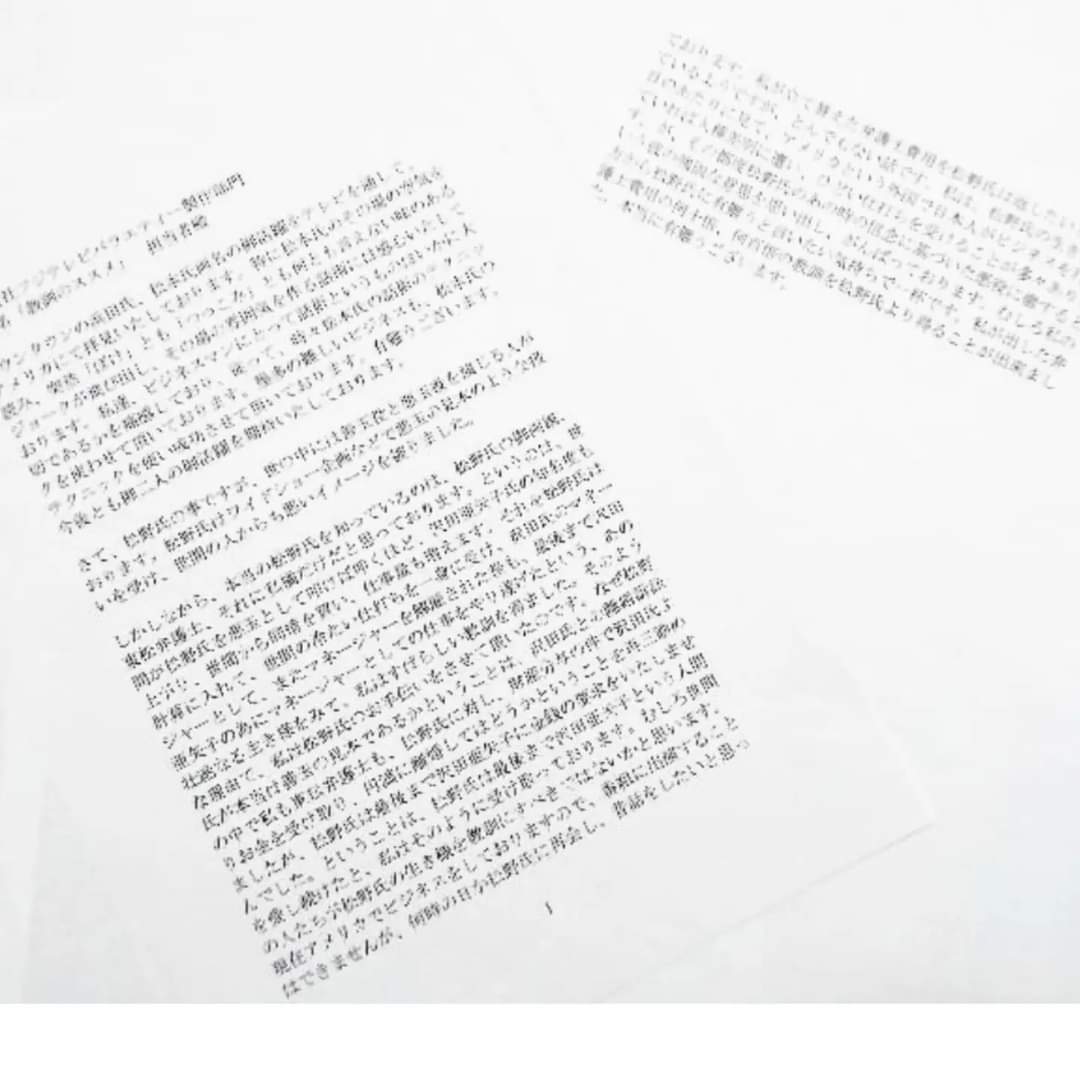 社フジテレビバラエティー製作部門
名「教訓のススメ」　担当者殿
ウンタウンの浜田氏、松本氏両名の御活躍をテレビを通して、
アメリカにて拝見いたしております。特に松本氏のその場の空気を
読み、突然「ぼけ」とも「つっこみ」とも何とも言えない味のある
ジョークが飛び出し、その場の雰囲気を作る話術には感心いたして
おります。私達、ビジネスマンにとって話術というものはいかに大
切であるかを痛感しており、従って、時々松本氏の話術のテクニッ
クを使わせて頂いております。
テクニックを使い成功させて頂いております。有難うございます。
今後とも御二人の御活躍を期待いたしております。
さて、松野氏の事ですが、世の中には善玉役と悪玉役を演じる人が
おります。松野氏はワイドショー企画などで悪玉の見本のような扱
いを受け、世間の人からも悪いイメージを被りました。
しかしながら、本当の松野氏を知っているのは、松野氏の御両親、
東松弁護士、それに私個だけだと思っております。というのは、世
間が松野氏を悪玉として叩けば叩くほど、沢田亜矢子氏の知名度も
上がり、世間から同情を買い、仕事量も増えます。それを松野氏は
計算に入れて、世間の冷たい仕打ちを一身に受け、沢田氏のマネー
ジャーとして、またマネージャーを解雇された後も、最後まで沢田
亜矢子の為にマネージャーとしての仕事をやり遂げたという、あの
壮絶なる生き様をみて、私はすばらしい教訓を得ました。そのよう
な理由で、私は松野氏のお手伝いをさせて頂いたのです。なぜ松野
氏が本当は善玉の見本であるかということは、沢田氏との離婚訴訟
の中で私も東松弁護士も、松野氏に対し、財産分与の件で沢田氏よ
りお金を受け取り、円満に離婚してはどうかということを再三勧め
ましたが、松野氏は最後まで沢田亜矢子に金銭の要求をいたしませ
んでした。ということは、松野氏は最後まで沢田亜矢子という人間
を愛し続けたと、私はそのように受け取っております。むしろ世間
の人たちが松野氏の生き様を教訓にすべきではないかと思います。
現在アメリカでビジネスをしておりますので、番組に出演すること
はできませんが、何時の日か松野氏に再会し、昔話をしたいと思っ
1
ております。私が立て替えた弁護士費用を松野氏は返したい
ているようですが、とんでもない話です。私は、松野氏の生き
目のあたりに見て、アメリカという外国で日本人がビジネスを
ていれば人種差別に遭い、ひどい仕打ちを受けることが多々あり
す。が、その都度松野氏のあの時の信念に基づいた
方から松野氏に有難うと言いたい気持ちで一杯です。私が出した弁
護士費用の何十倍、何百倍の教訓を松野氏より得ることが出来まし
た。本当に有難うございます。